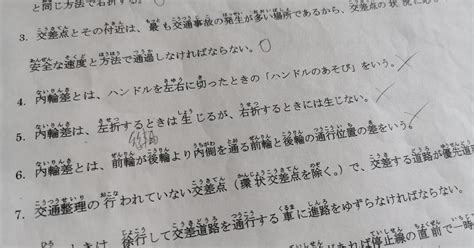 と同じ方法で右折する。
3. 交差点とその付近は、最も交通事故の発生が多い場所であるから、交差点の状況に応
安全な速度と方法で通過しなければならない。
4. 内輪差とは、ハンドルを左右に切ったときの「ハンドルのあそび」をいう。
5. 内輪差は、左折するときは生じるが、右折するときには生じない。
6. 内輪差とは、前輪が後輪より内側を通る前輪と後輪の通行位置の差をいう。
7. 交通整理の行われていない交差点（環状交差点を除く。）で、交差する道路が優先道
ときは、徐行して交差道路を通行する車に進路をゆずらなければならない。
であれば停止線の直前で一